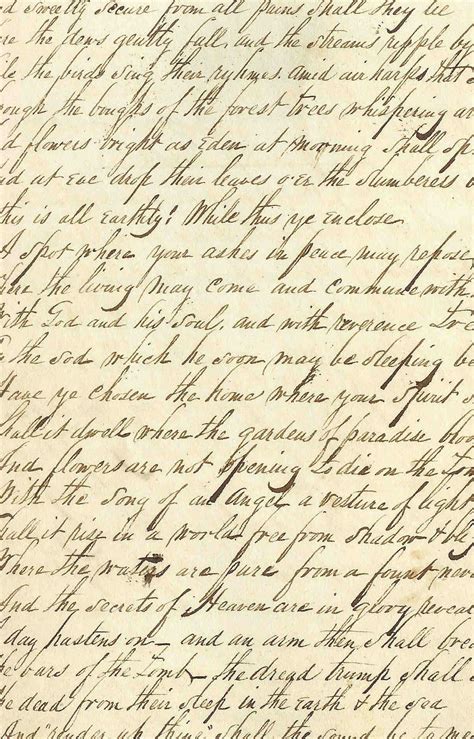 d sweetly secure from all pains shall they be
re the dews gently fall, and the streams ripple by
le the birds sing their rhymes amid air harps that
rough the boughs of the forest trees whispering ar
d flowers bright as Eden at morning shall sp
nd at Eve drop their leaves o'er the slumberers
this is all Earthly! While thus ye enclose
A spot where your ashes in peace may repose
ere the living may come and commune with
With God and his soul, and with reverence
the sod which he soon may be sleeping be
Have ye chosen the home where your spirit s
Shall it dwell where the gardens of paradise bloo
And flowers are not opening to die on the Tom
With the song of an Angel a vesture of light
Shall it rise in a world free from shadow &
Where the waters are pure from a fount neve
And the secrets of Heaven are in glory revea
day hastens on - and an arm then shall brea
he bars of the Tomb - the dread trump shall
he dead from their sleep in the Earth & the Sea
And "render up thing" shall the sound be to